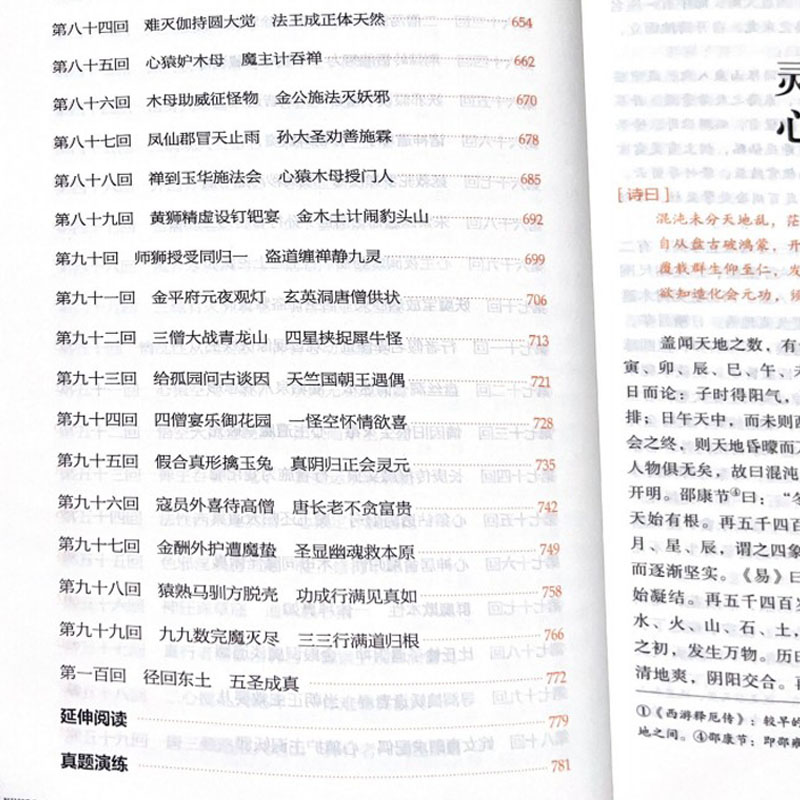 第八十四回 难灭伽持圆大觉 法王成正体天然 654
第八十五回 心猿妒木母 魔主计吞禅 662
第八十六回 木母助威征怪物 金公施法灭妖邪 670
第八十七回 凤仙郡冒天止雨 孙大圣劝善施霖 678
第八十八回 禅到玉华施法会 心猿木母授门人 685
第八十九回 黄狮精虚设钉钯宴 金木土计闹豹头山 692
第九十回 师狮授受同归一 盗道缠禅静九灵 699
第九十一回 金平府元夜观灯 玄英洞唐僧供状 706
第九十二回 三僧大战青龙山 四星挟捉犀牛怪 713
第九十三回 给孤园问古谈因 天竺国朝王遇偶 721
第九十四回 四僧宴乐御花园 一怪空怀情欲喜 728
第九十五回 假合真形擒玉兔 真阴归正会灵元 735
第九十六回 寇员外喜待高僧 唐长老不贪富贵 742
第九十七回 金酬外护遭魔蛰 圣显幽魂救本原 749
第九十八回 猿熟马驯方脱壳 功成行满见真如 758
第九十九回 九九数完魔灭尽 三三行满道归根 766
第一百回 径回东土 五圣成真 772
延伸阅读 779
真题演练 781
灵
心
[诗曰]
混沌未分天地乱，茫
自从盘古破鸿蒙，开
覆载群生仰至仁，发
欲知造化会元功，须
盖闻天地之数，有
寅、卯、辰、巳、午、未
日而论：子时得阳气，
排；日午天中，而未则西
会之终，则天地昏曚而万
人物俱无矣，故曰混沌
开明。邵康节④曰：“冬
天始有根。再五千四百
月、星、辰，谓之四象
而逐渐坚实。《易》曰
始凝结。再五千四百岁
水、火、山、石、土，
之初，发生万物。历曰
清地爽，阴阳交合。再
①《西游释厄传》：较早的
地之间。④邵康节：即邵雍